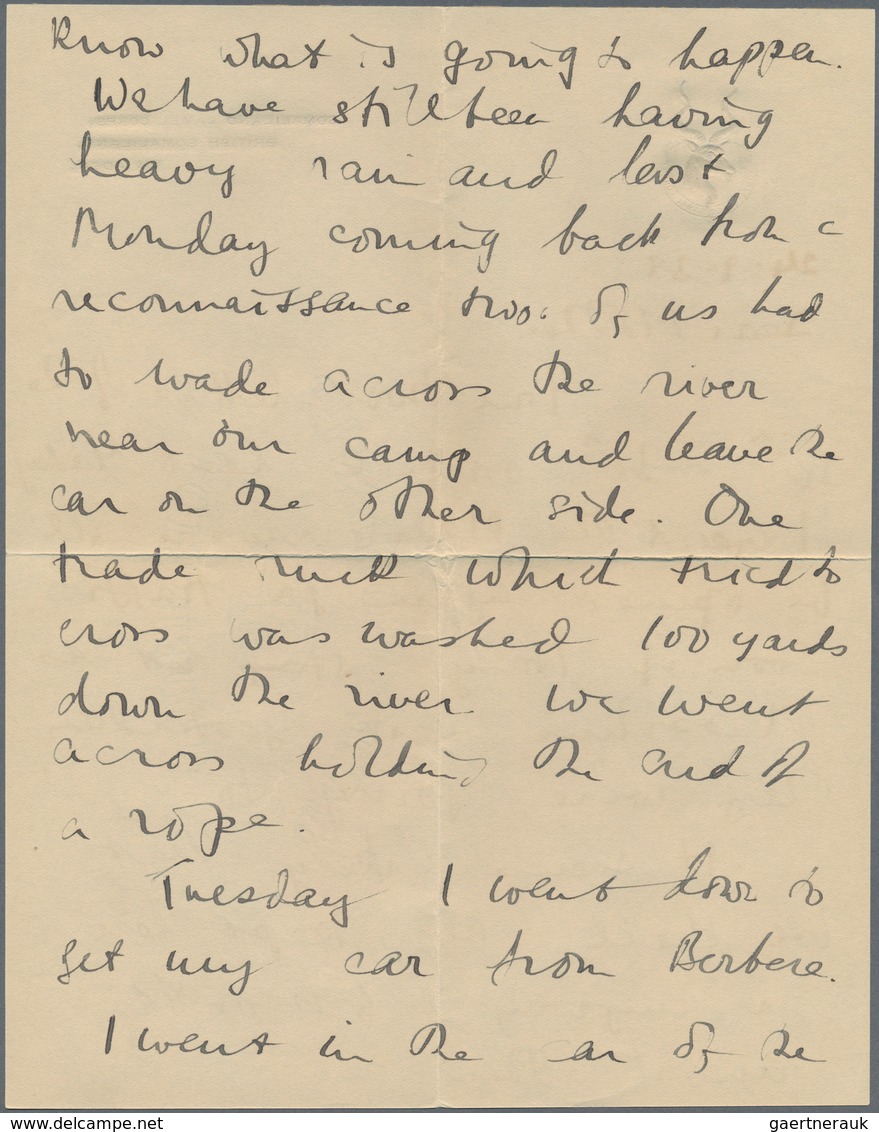 know what is going to happen.
We have still been having
heavy rain and last
Monday coming back from a
reconnaissance two of us had
to wade across the river
near our camp and leave the
car on the other side. One
trade truck which tried to
cross was washed 100 yards
down the river we went
across holding the end of
a rope.
Tuesday I went down to
get my car from Berbera.
I went in the car of the
delcampe.net
gaertnerauk